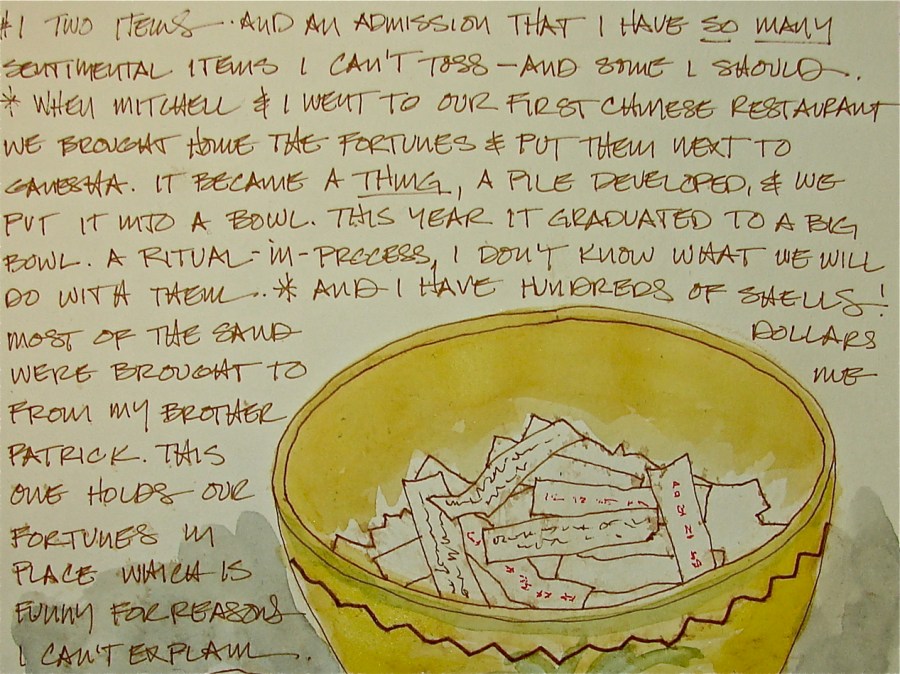 #1 TWO ITEMS.. AND AN ADMISSION THAT I HAVE SO MANY
SENTIMENTAL ITEMS I CAN'T TOSS – AND SOME I SHOULD..
* WHEN MITCHELL & I WENT TO OUR FIRST CHINESE RESTAURANT
WE BROUGHT HOME THE FORTUNES & PUT THEM NEXT TO
GANESHA. IT BECAME A THING, A PILE DEVELOPED, & WE
PUT IT INTO A BOWL. THIS YEAR IT GRADUATED TO A BIG
BOWL. A RITUAL-IN-PROCESS, I DON'T KNOW WHAT WE WILL
DO WITH THEM.. * AND I HAVE HUNDREDS OF SHELLS!
MOST OF THE SAND DOLLARS
WERE BROUGHT TO ME
FROM MY BROTHER
PATRICK. THIS
ONE HOLDS OUR
FORTUNES IN
PLACE WHICH IS
FUNNY FOR REASONS
I CAN'T EXPLAIN..